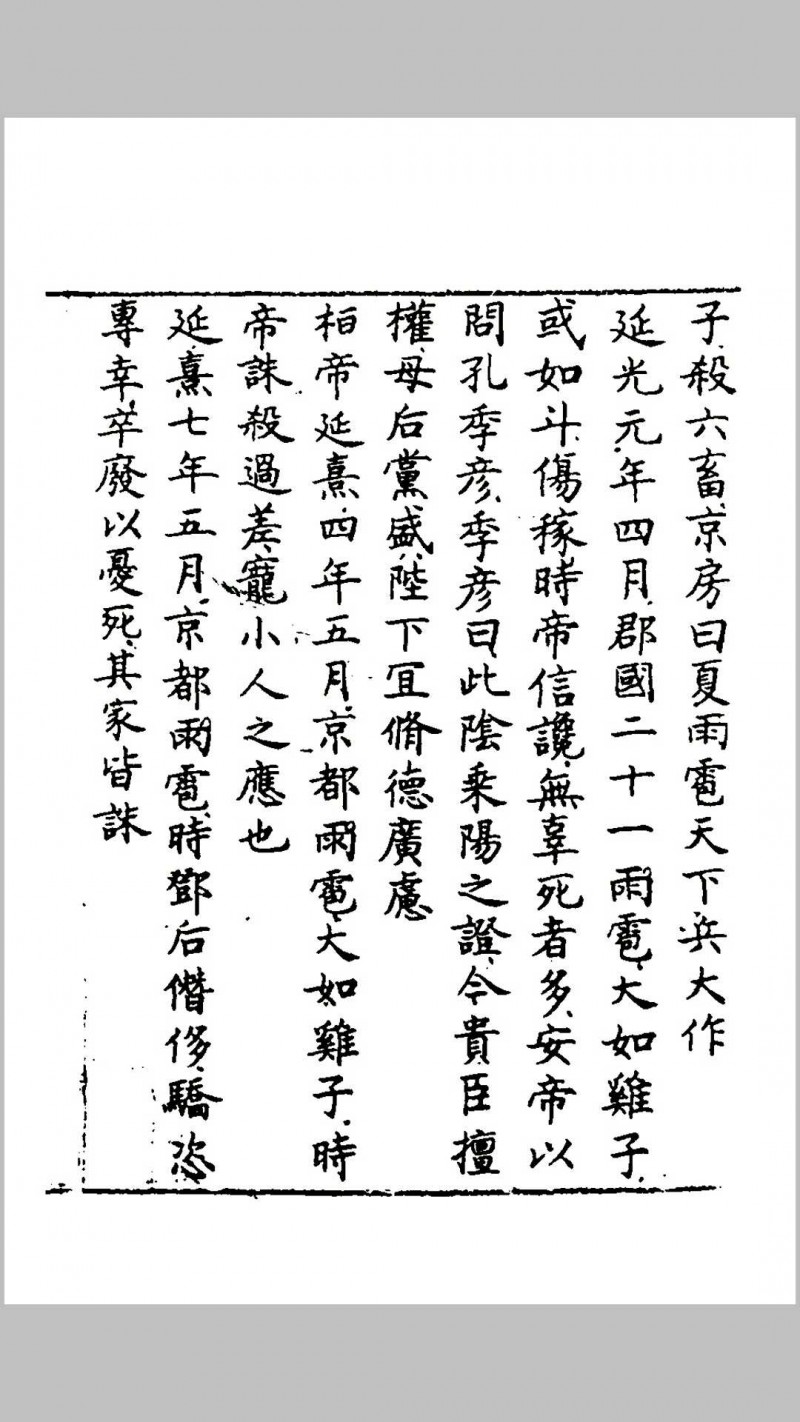 子殺六畜京房曰夏雨雹天下兵大作
延光元年四月郡國二十一雨雹大如雞子
或如斗傷稼時帝信讒無辜死者多安帝以
問孔季彦季彦曰此陰乗陽之證今貴臣擅
權母后黨盛陛下冝脩德廣慮
桓帝延熹四年五月京都雨雹大如雞子時
帝誅殺過差寵小人之應也
延熹七年五月京都雨雹時鄧后僭侈驕恣
專幸卒廢以憂死其家皆誅